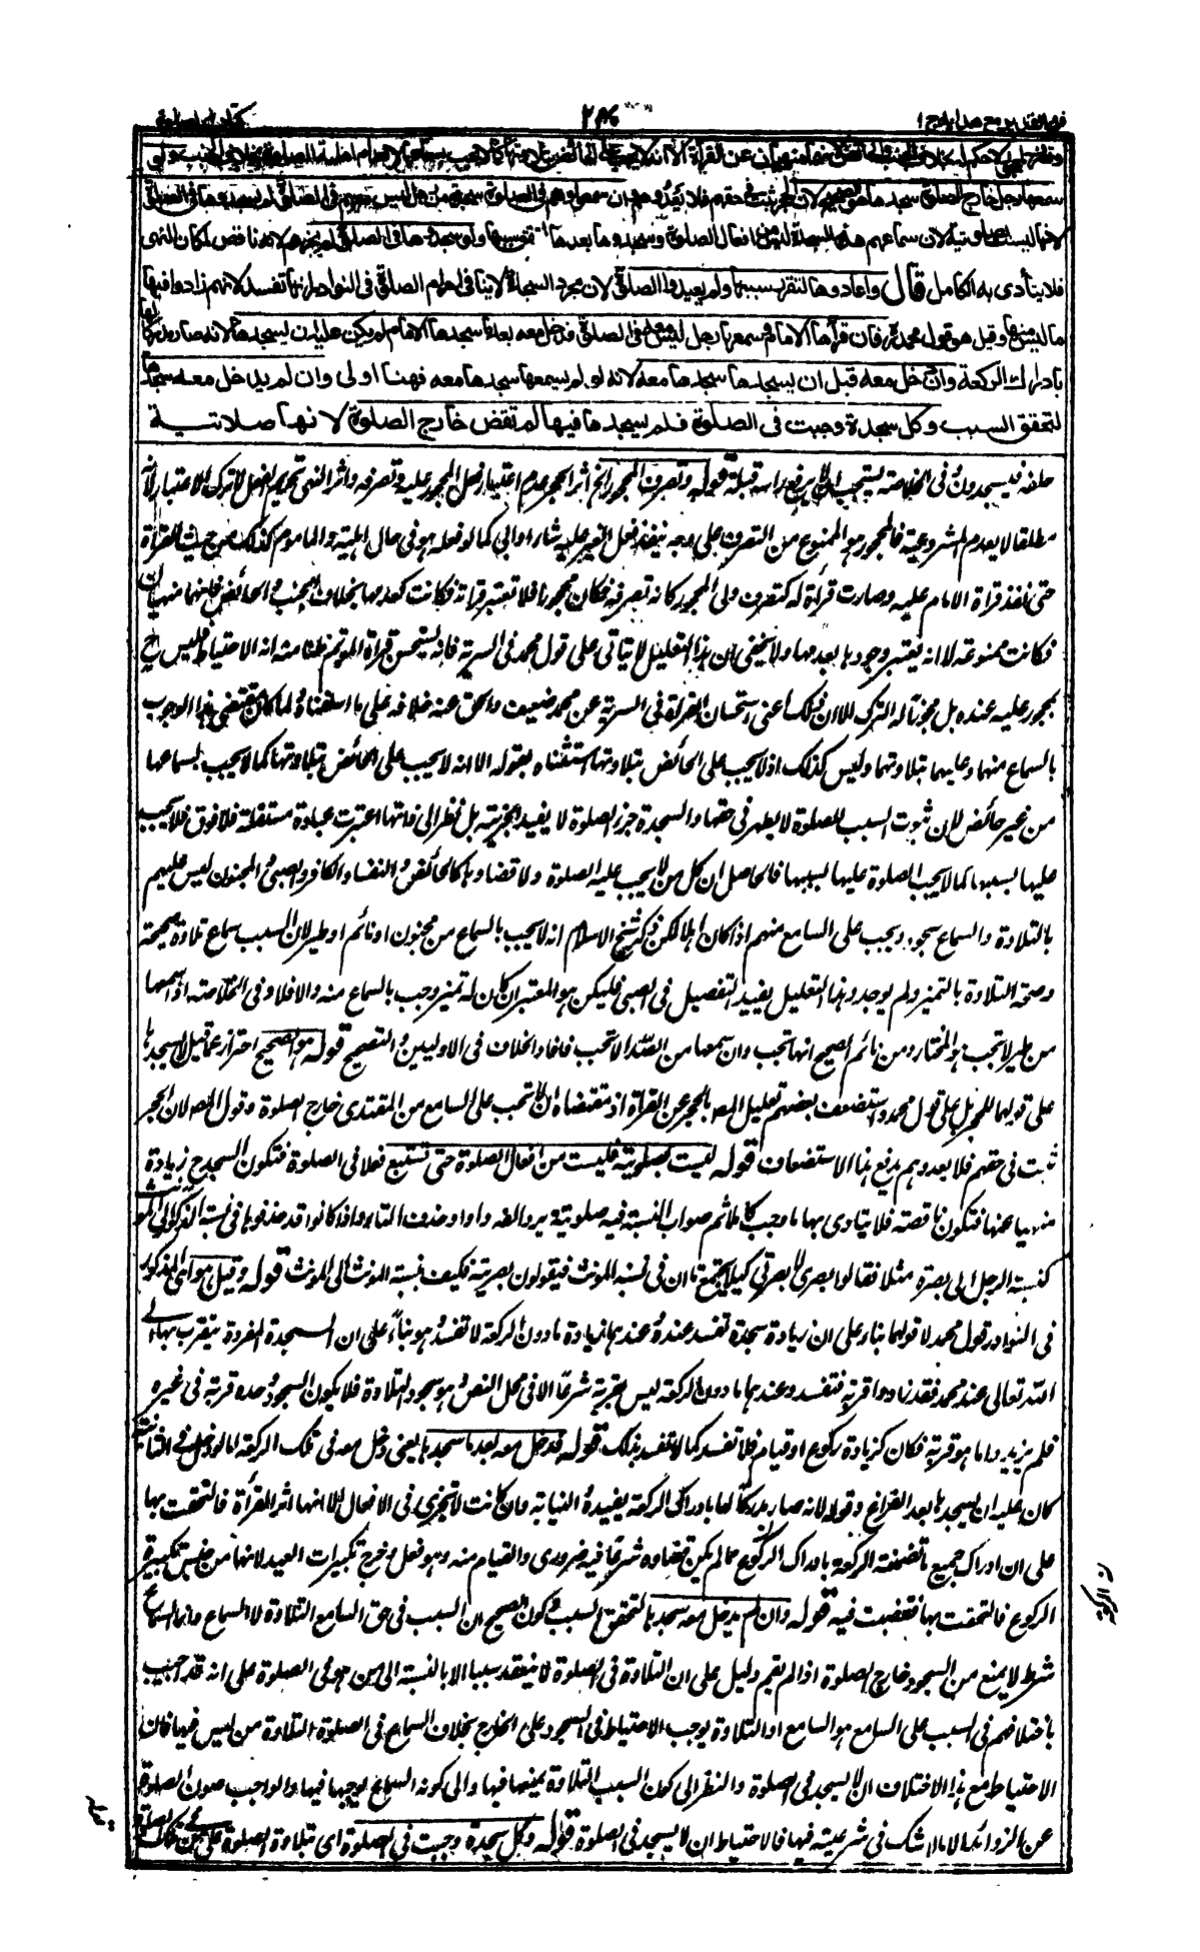 فتح القدير مع هدايه ج ١
كتاب الصلوة
سمعها رجل خارج الصلوة سجدها هو الصحيح لان الحجر ثبت في حقهم فلا يعدوهم وان سمعوا وهم في الصلوة سجدة من رجل ليس معهم في الصلوة لم يسجدوها في الصلوة
لانها ليست بصلوتية لان سماعهم هذه السجدة ليس من افعال الصلوة وسجدوها بعدها لتحقق سببها ولو سجدوها في الصلوة لم يجزهم لانه ناقص لمكان النهي
فلا يتأدى به الكامل قال واعادوها لتقرر سببها ولم يعيدوا الصلوة لان مجرد السجدة لا ينافي احرام الصلوة في النوادر انها تفسد لانهم زادوا فيها
ما ليس منها وقيل هو قول محمد فان قرأها الامام وسمعها رجل ليس معه في الصلوة فدخل معه بعد ما سجدها الامام لم يكن عليه ان يسجدها لانه صار مدركا لها
بادراك الركعة وان دخل معه قبل ان يسجدها سجدها معه لانه لو لم يسمعها سجدها معه فهنا اولى وان لم يدخل معه سجدها
لتحقق السبب وكل سجدة وجبت في الصلوة فلم يسجدها فيها لم تقض خارج الصلوة لانها صلاتية
خلفه فيسجدون في الخلاصة يستحب ان لا يرفع راسه قبله قوله وتصرف المحجور الخ اثر الحجر عدم اعتبار فعل المحجور عليه وتصرفه واثر النهي تحريم الفعل لا ترك الاعتبار لانه
مطلقا لا يعدم المشروعية فالمحجور هو الممنوع من التصرف على وجه ينفذ فعل الغير عليه شاء او ابى كما لو فعله هو في حال اهليته والماموم كذلك من حيث القرأة
حتى نفذ قراة الامام عليه وصارت قرأة له كتصرف ولي المحجور كانه تصرفه فكان محجورا فلا تعتبر قراته فكانت كعدمها بخلاف الجنب والحائض فانهما منهيان
فكانت ممنوعة الا انه يعتبر وجودها بعدمها ولا يخفى ان هذا التعليل لا يتاتى على قول محمد في السرية فانه يستحسن قراة المؤتم ظنا منه انه الاحتياط فليس
بمحجور عليه عنده بل مجوزا له الترك اللا ان ذلك اعني استحسان القرأة في السرية عن محمد ضعيف والحق عنه خلافه على ما اسلفناه ولما كان مقتضى هذا الوجوب
بالسماع منهما وعليهما بتلاوتهما وليس كذلك اذ لا يجب على الحائض بتلاوتها استثناه بقوله الا انه لا يجب على الحائض بتلاوتها كما لا يجب بسماعها
من غير حائض لان ثبوت السبب للصلوة لا يظهر في حقها والسجدة جزء الصلوة لا يفيد الجزئية بل نظر الى ذاتها اعتبرت عبادة مستقلة فلا فرق فلا يجب
عليها بسببها كما لا يجب الصلوة عليها بسببها فالحاصل ان كل من لا يجب عليه الصلوة ولا قضاؤها كالحائض والنفساء والكافر والصبي والمجنون ليس عليهم
بالتلاوة والسماع سجود ويجب على السامع منهم اذا كان اهلا لكن ذكر شيخ الاسلام انه لا يجب بالسماع من مجنون او نائم او طير لان السبب سماع تلاوة صحيحة
وصحة التلاوة بالتميز ولم يوجد وهذا التعليل يفيد التفصيل في الصبي فليكن هو المعتبر ان كان له تميز وجب بالسماع منه والا فلا وفي الخلاصة اذا سمعها
من طير لا تجب هو المختار ومن نائم الصحيح انها تجب وان سمعها من الصدا لا تجب فافاد الخلاف في الاوليين والتصحيح قوله هو الصحيح احتراز عما قيل لا يسجدها
على قولهما للحجر بل على قول محمد واستضعف بعضهم تعليل المص بالحجر عن القرأة اذ مقتضاه ان لا تجب على السامع من المقتدي خارج الصلوة وقول المص لان الحجر
ثبت في حقهم فلا يعدوهم يدفع هذا الاستضعاف قوله ليست بصلوتية فليست من افعال الصلوة حتى تستتبع فعلا في الصلوة فتكون السجدة ح زيادة
منهيا عنها فتكون ناقصة فلا يتادى بها ما وجب كاملا ثم صواب النسبة فيه صلوية برد الفه واوا وحذف التاء واذا كانوا قد حذفوها في نسبة المذكر الى المؤنث
كنسبة الرجل الى بصرة مثلا فقالوا بصري لا بصرتي كيلا يجتمع تاان في نسبة المؤنث فيقولون بصرتية فكيف بنسبة المؤنث الى المؤنث قوله وقيل هو اى المذكور
في النوادر قول محمد لا قولهما بناء على ان زيادة سجدة تفسد عنده وعندهما زيادة ما دون الركعة لا تفسد وهو بناء على ان السجدة المفردة يتقرب بها الى
الله تعالى عند محمد فقد زادوا قربة فتفسد وعندهما ما دون الركعة ليس بقربة شرعا الا في محل النص وهو سجود التلاوة فلا يكون السجود وحده قربة في غيره
فلم يزيدوا ما هو قربة فكان كزيادة ركوع او قيام فلا تفسد كما لا تفسد بذلك قوله فدخل معه بعد ما سجدها يعني دخل معه في تلك الركعة اما لو دخل في الثانية
كان عليه ان يسجدها بعد الفراغ وقوله لانه صار مدركا لها بادراك الركعة يفيده النيابة وان كانت لا تجزى في الافعال اللا انها اثر القرأة فالتحقت بها
على ان ادراك جميع ما تضمنته الركعة بادراك الركوع مما لم يكن قضاؤه شرعا فيه ضروري والقيام منه وهو فعل وخرج تكبيرات العيد لانها من جنس تكبير
الركوع فالتحقت بها فقضيت فيه قوله وان لم يدخل معه سجدها لتحقق السبب كون الصحيح ان السبب في حق السامع التلاوة لا السماع وانما السماع
شرط لا يمنع من السجود خارج الصلوة اذا لم يقم دليل على ان التلاوة في الصلوة لا ينعقد سببا الا بالنسبة الى من هو في الصلوة على انه قد اجيب
باختلافهم في السبب على السامع هو السامع او التلاوة يوجب الاحتياط في السجود على الخارج بخلاف السماع في الصلوة التلاوة من ليس فيها فان
الاحتياط مع هذا الاختلاف ان لا يسجد في الصلوة والنظر الى كون السبب التلاوة يمنعها فيها والى كونه السماع يوجبها فيها والواجب صون الصلوة
عن الزوائد الا ما لا شك في شرعيته فيها فالاحتياط ان لا يسجد في الصلوة قوله وكل سجدة وجبت في الصلوة اى بتلاوة الصلوة